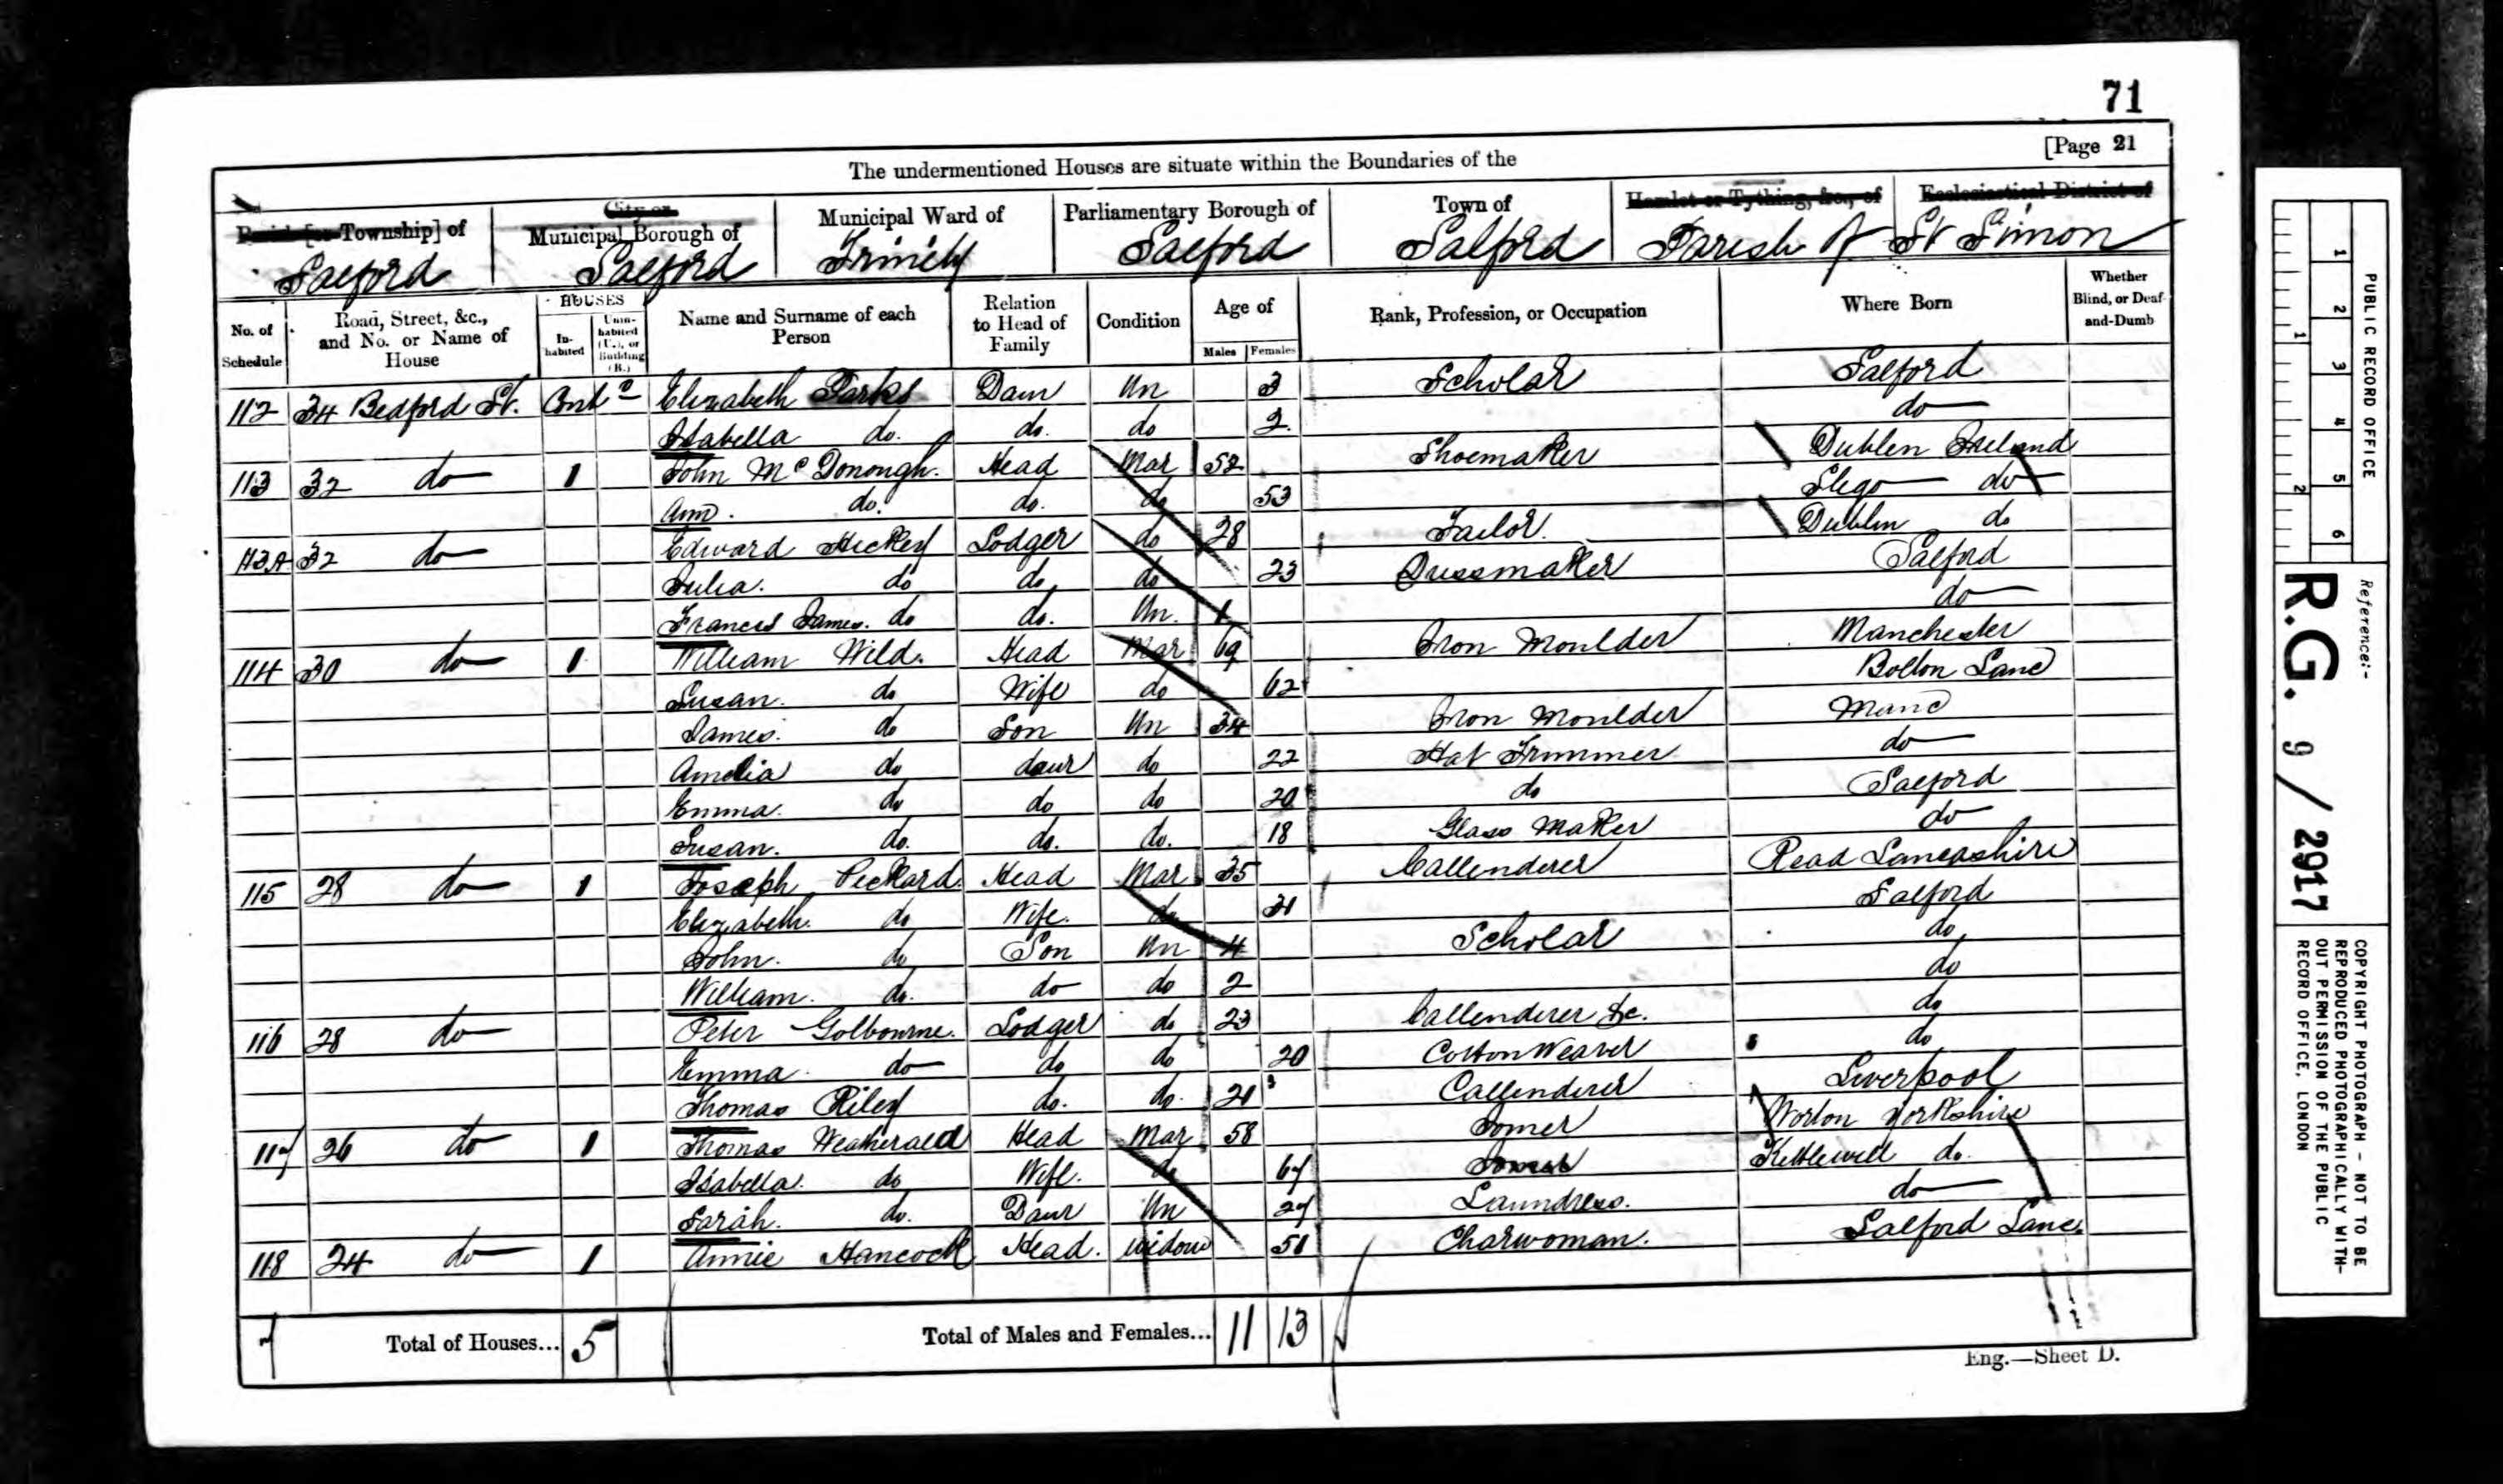 71
[Page 21
The undermentioned Houses are situate within the Boundaries of the
Parish [or Township] of
City or Municipal Borough of
Municipal Ward of
Parliamentary Borough of
Town of
Hamlet or Tything, &c., of
Ecclesiastical District of
Salford Salford Trinity Salford Salford Parish of St Simon
No. of Schedule
Road, Street, &c., and No. or Name of House
HOUSES
In-habited
Unin-habited (U.), or Building (B.)
Name and Surname of each Person
Relation to Head of Family
Condition
Age of
Males Females
Rank, Profession, or Occupation
Where Born
Whether Blind, or Deaf-and-Dumb
112 34 Bedford St. Contd Elizabeth Parks Daur Un 3 Scholar Salford
Isabella do. do. do 2 do
113 32 do 1 John McDonough. Head Mar 52 Shoemaker Dublin Ireland
Ann. do. do. do 53 Sligo do
113A 32 do Edward Hickey Lodger do 28 Tailor. Dublin do
Julia. do do do 23 Dressmaker Salford
Francis James. do do. Un. 1 do
114 30 do 1 William Wild. Head Mar 69 Iron Moulder Manchester
Susan. do Wife do 62 Bolton Lanc
James. do Son Un 34 Iron Moulder Manc
Amelia do daur do 22 Hat Trimmer do
Emma. do do do 20 do Salford
Susan. do. do. do. 18 Glass Maker do
115 28 do 1 Joseph Peckard. Head Mar 35 Callenderer Read Lancashire
Elizabeth. do Wife. do 31 Salford
John. do Son Un 4 Scholar do
William. do. do do 2 do
116 28 do Peter Golbourne. Lodger do 23 Callenderer &c. do
Emma do do do 20 Cotton Weaver do
Thomas Riley do. do. 21 Callenderer Liverpool
117 26 do 1 Thomas Weatherald Head Mar 58 Joiner Worton Yorkshire
Isabella. do Wife. do 67 Kettlewell do.
Sarah. do. Daur Un 27 Laundress. do
118 24 do 1 Annie Hancock Head. Widow 51 Charwoman. Salford Lanc.
7 Total of Houses... 5 Total of Males and Females... 11 13
Eng.—Sheet D.
1 2 3 4 5 6
1 2
PUBLIC RECORD OFFICE
Reference:-
R.G. 9 / 2917
COPYRIGHT PHOTOGRAPH - NOT TO BE
REPRODUCED PHOTOGRAPHICALLY WITH-
OUT PERMISSION OF THE PUBLIC
RECORD OFFICE, LONDON